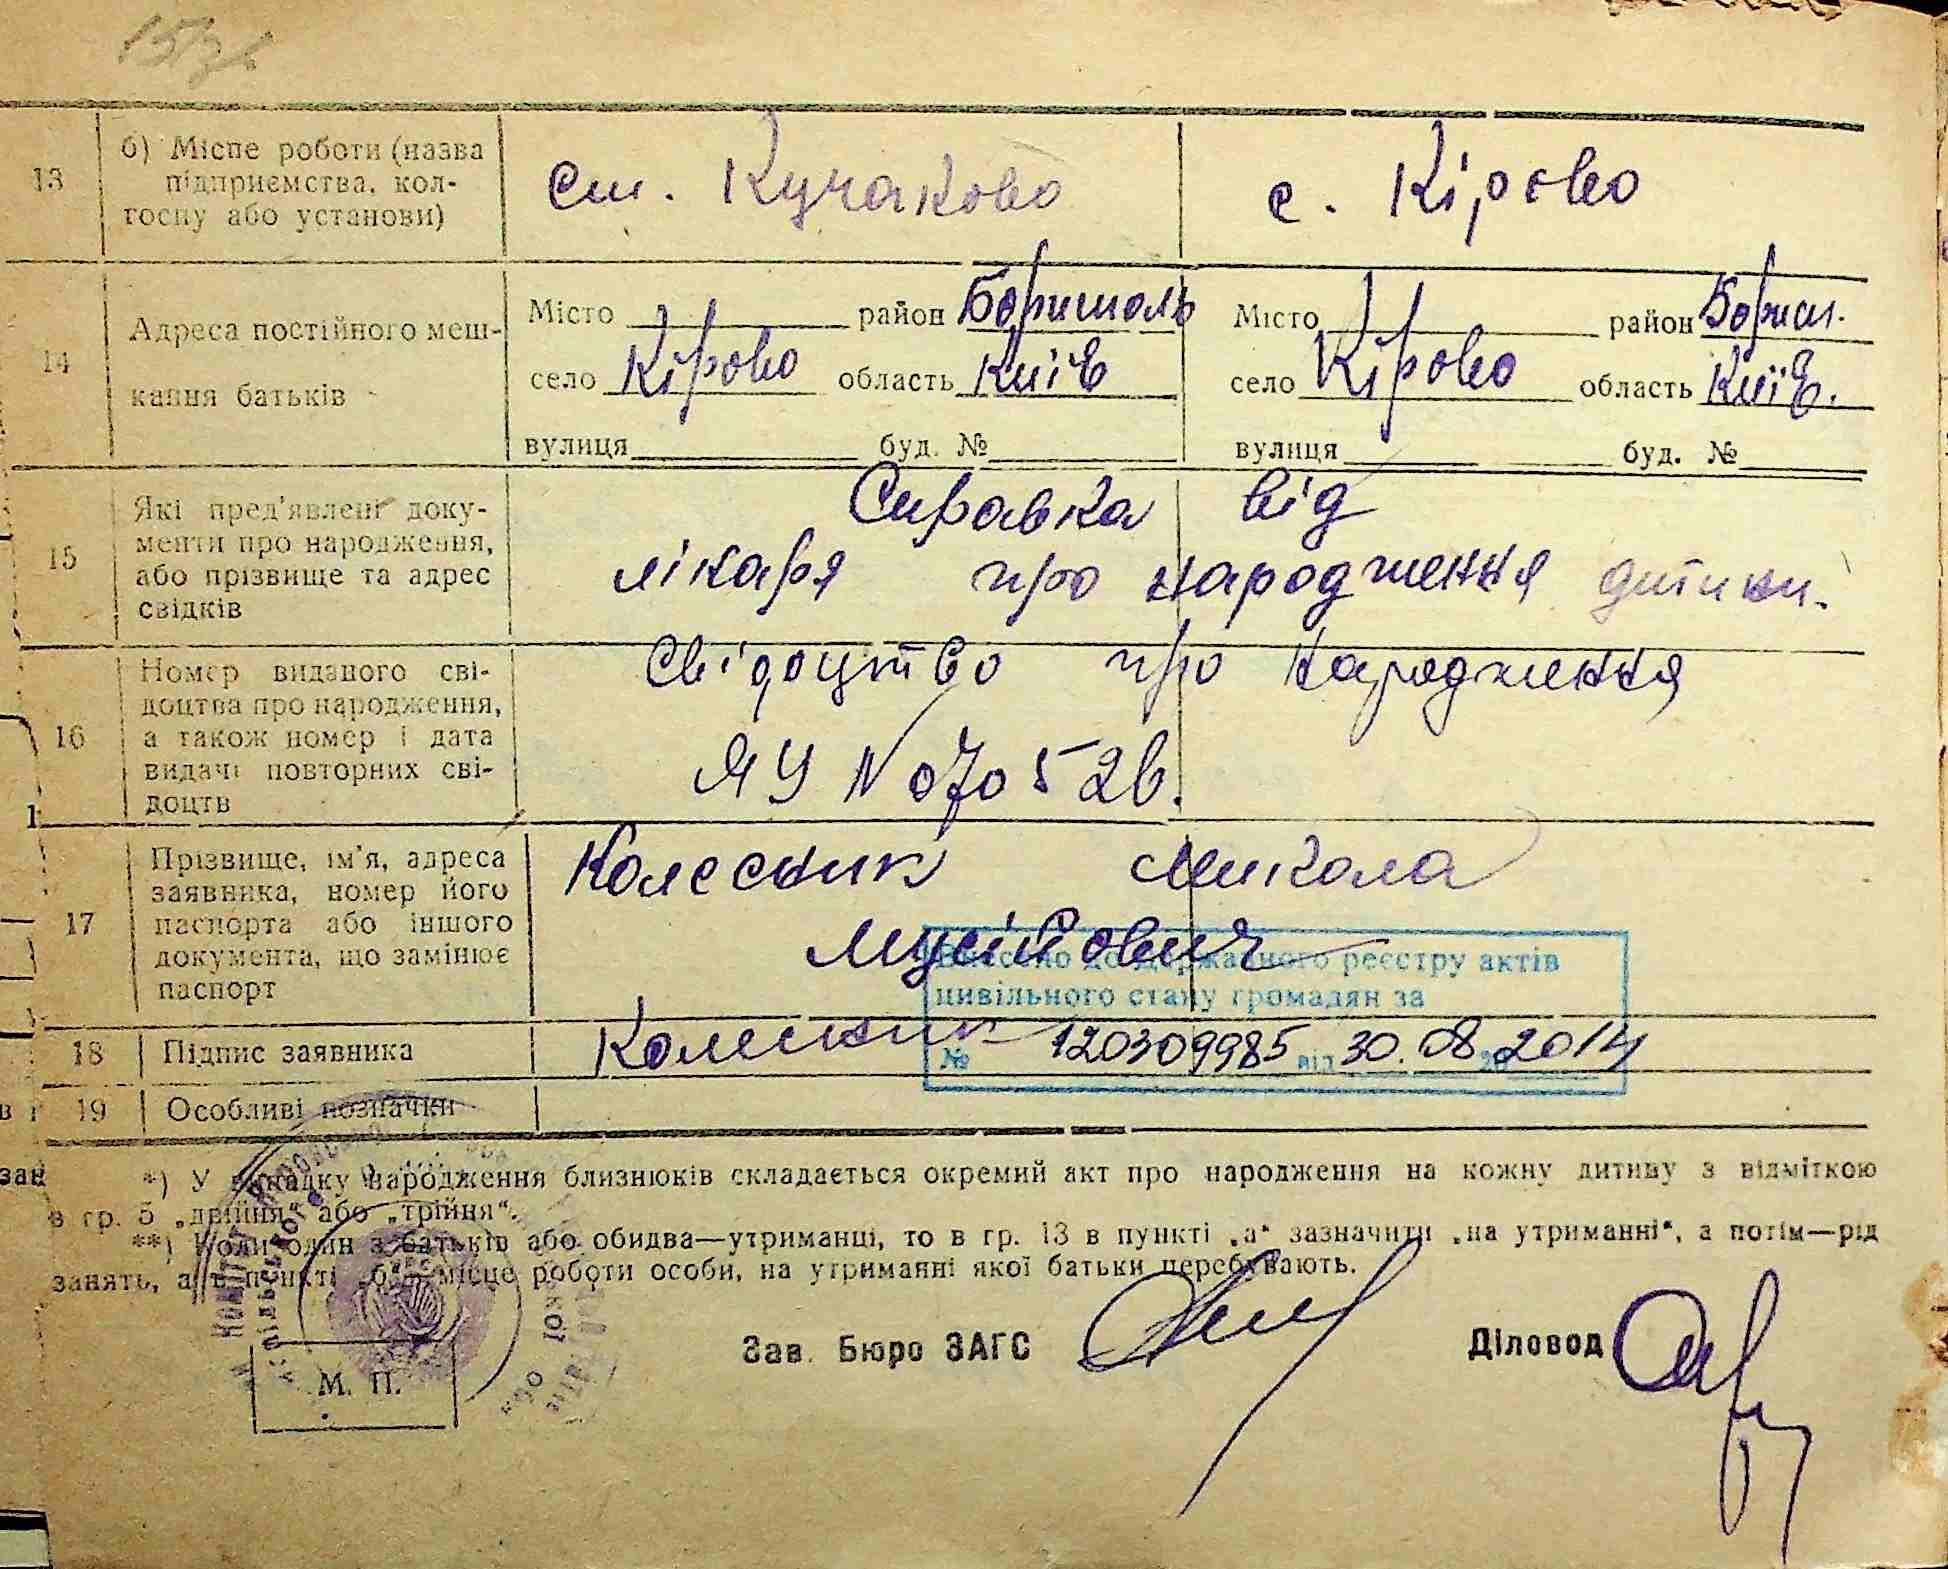 13 б) Місце роботи (назва підприємства, колгоспу або установи)
ст. Кучаково
с. Кірово
14 Адреса постійного мешкання батьків
Місто район Бориполь
село Кірово область Київ
вулиця буд. №
Місто район Борисп.
село Кірово область Київ.
вулиця буд. №
15 Які пред'явлені документи про народження, або прізвище та адрес свідків
Справка від
лікаря про народження дитини.
16 Номер виданого свідоцтва про народження, а також номер і дата видачі повторних свідоцтв
Свідоцтво про народження
ЯУ N 070526.
17 Прізвище, ім'я, адреса заявника, номер його паспорта або іншого документа, що замінює паспорт
Колесник Микола
Мусійович
Внесено до державного реєстру актів
цивільного стану громадян за
№ 120309985 від 30.08.2014
18 Підпис заявника
Колесник
19 Особливі позначки
*) У випадку народження близнюків складається окремий акт про народження на кожну дитину з відміткою
в гр. 5 „двійня“ або „трійня“.
**) Коли один з батьків або обидва—утриманці, то в гр. 13 в пункті „а“ зазначити „на утриманні“, а потім—рід
занять, а в пункті „б“ місце роботи особи, на утриманні якої батьки перебувають.
Зав. Бюро ЗАГС
Діловод
М. П.